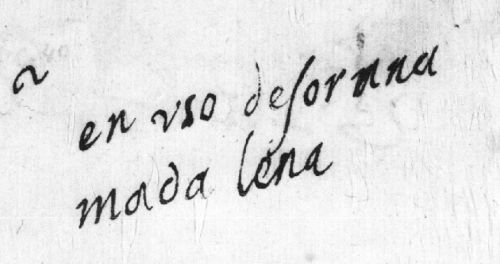 en vso desor anna
mada lena